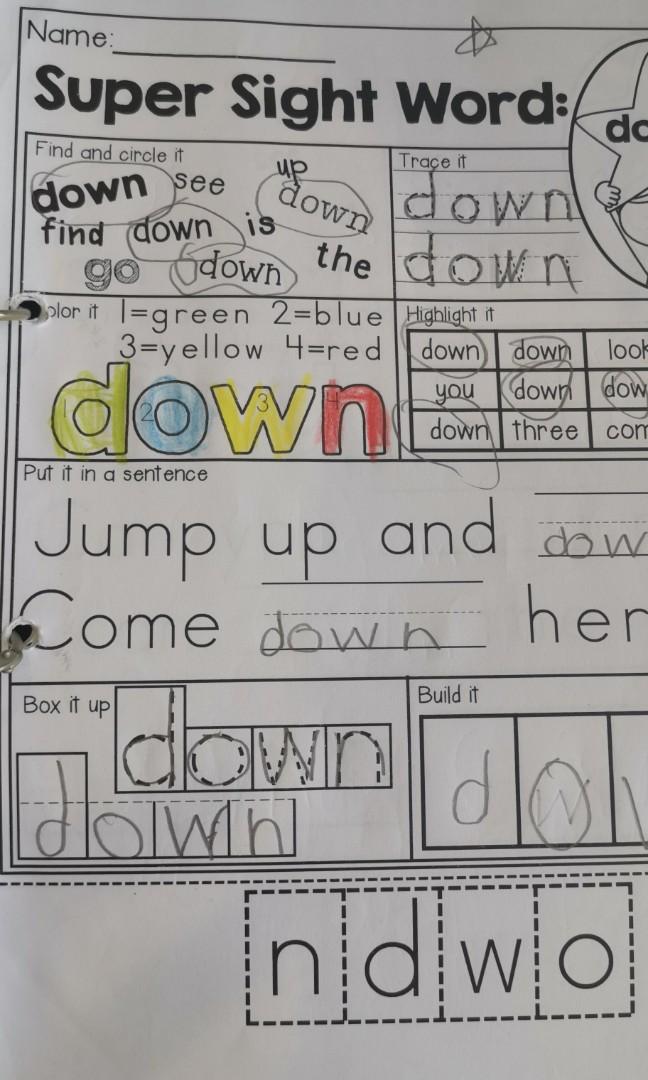 Name:
Super Sight Word:
do
Find and circle it
down see up down
find down is
go down the
Trace it
down
down
olor it 1=green 2=blue
3=yellow 4=red
1 2 3
down
Highlight it
down down look
you down dow
down three com
Put it in a sentence
Jump up and dow
Come down her
Box it up
down
down
Build it
d o
n d w o